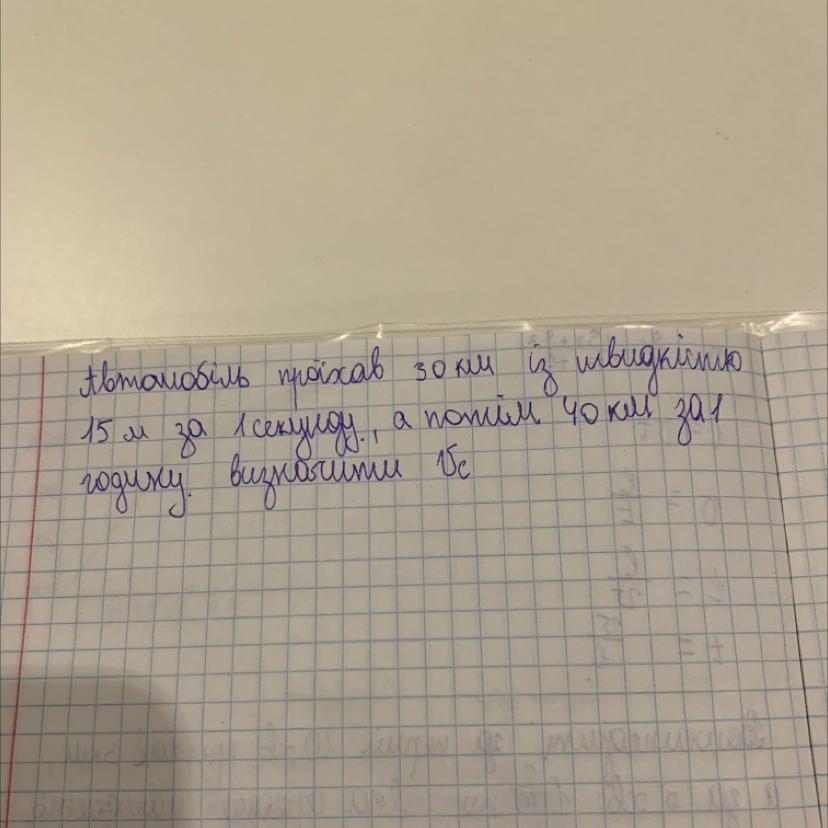 Автомобіль проїхав 30 км із швидкістю
15 м за 1 секунду., а потім 40 км за 1
годину. визначити Vc